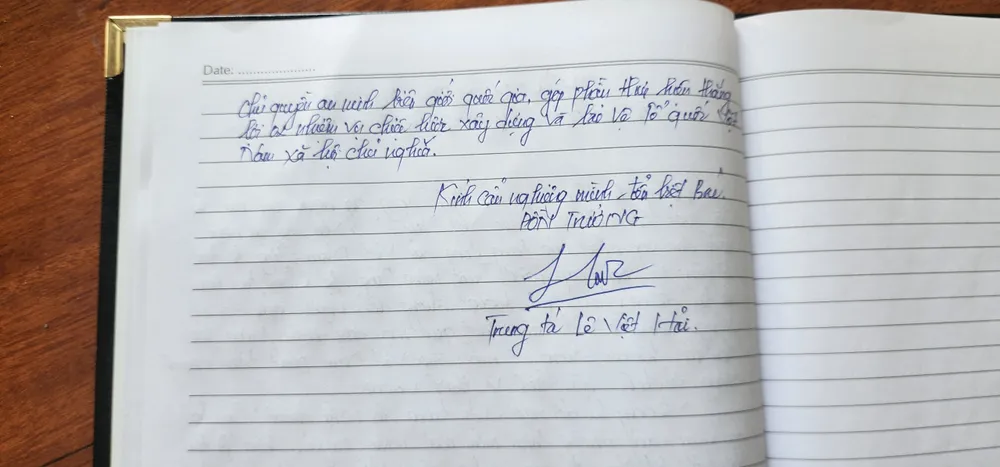 Date: ......................
chủ quyền an ninh biên giới quốc gia, góp phần thực hiện thắng
lợi 02 nhiệm vụ chiến lược xây dựng và bảo vệ Tổ quốc Việt
Nam xã hội chủ nghĩa.
Kính cẩn nghiêng mình tiễn biệt Bác!
ĐỒN TRƯỞNG
Trung tá Lê Việt Hải.